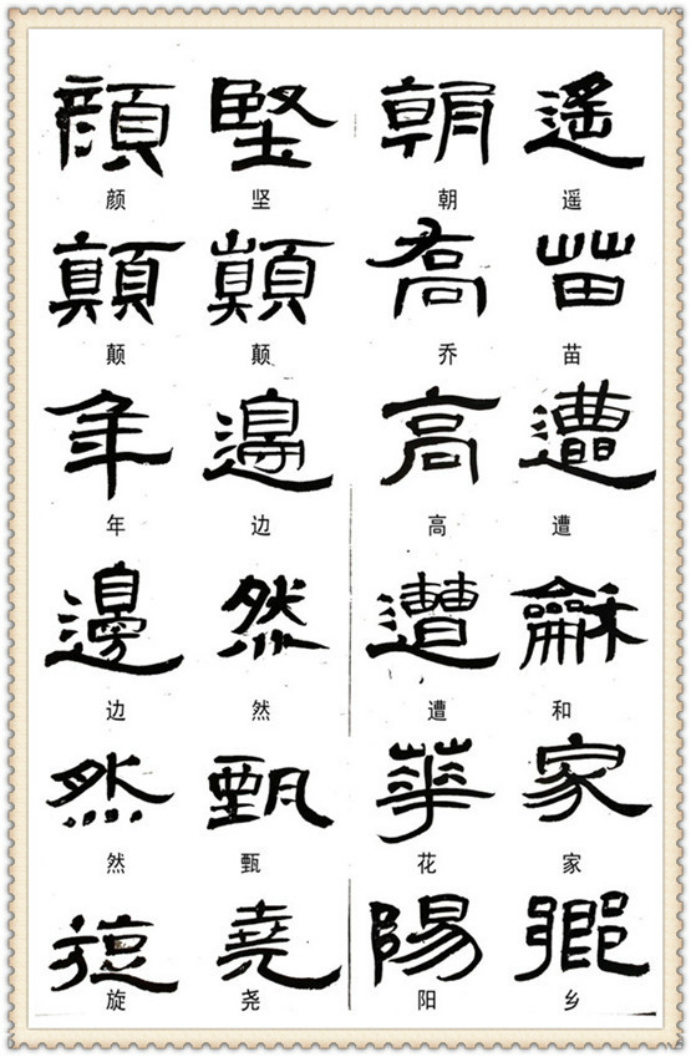 顔 堅 朝 遙
颜 坚 朝 遥
顛 顛 喬 苗
颠 颠 乔 苗
年 邊 高 遭
年 边 高 遭
邊 然 遭 龢
边 然 遭 和
然 甄 華 家
然 甄 花 家
旋 堯 陽 鄉
旋 尧 阳 乡